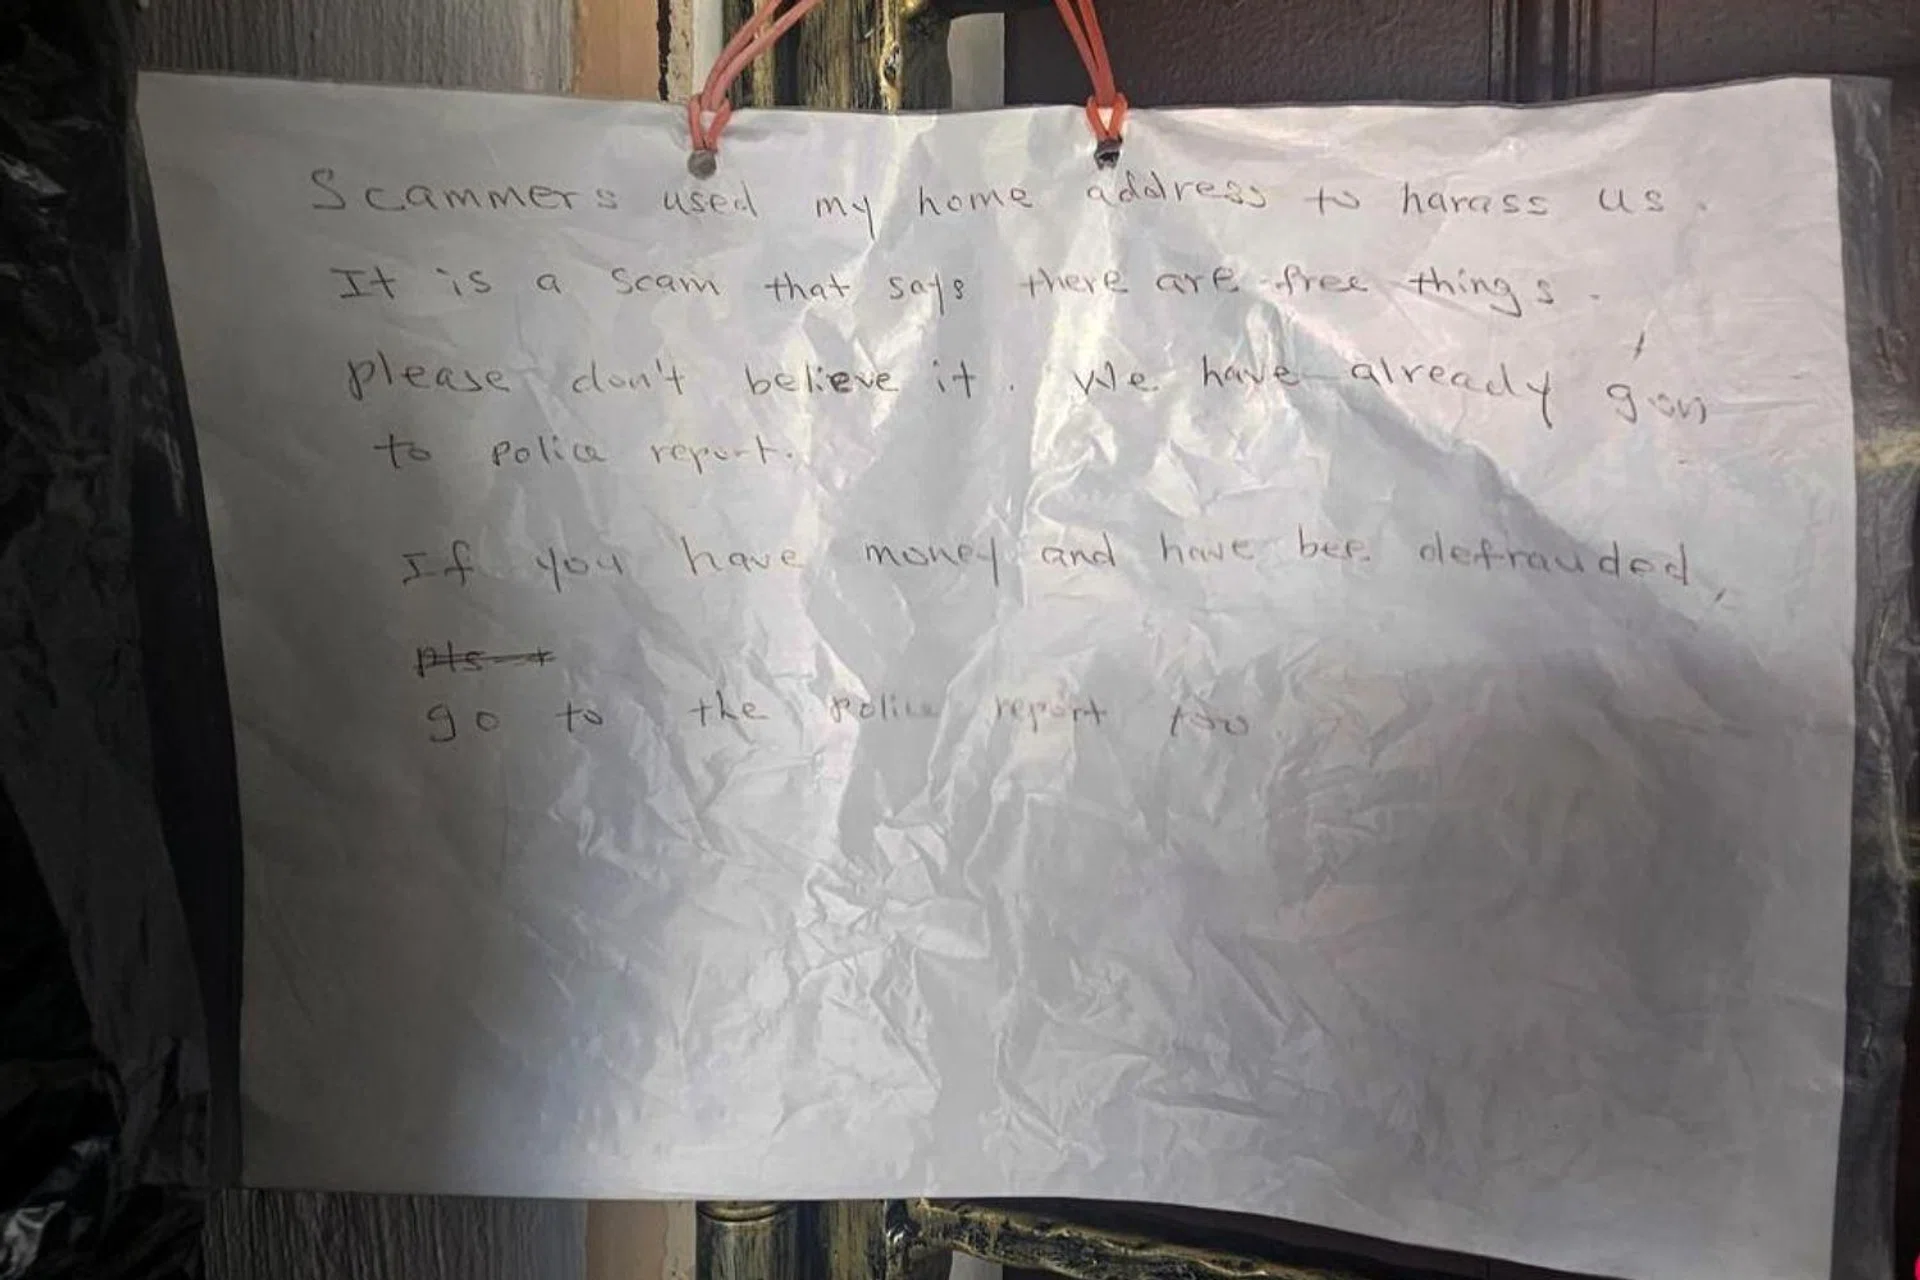 Scammers used my home address to harass us.
It is a scam that says there are free things.
please don't believe it. We have already gon
to police report.
If you have money and have bee defrauded,
go to the police report too